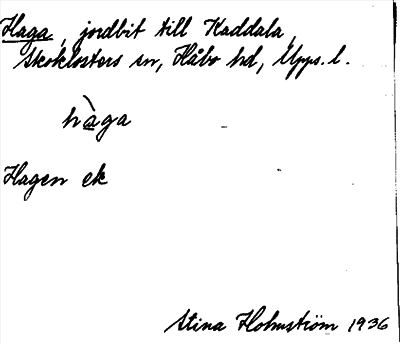 Haga, jordbit till Kaddala,
Skoklosters sn, Håbo hd, Upps. l.
hàga
Hagen ek
Stina Holmström 1936